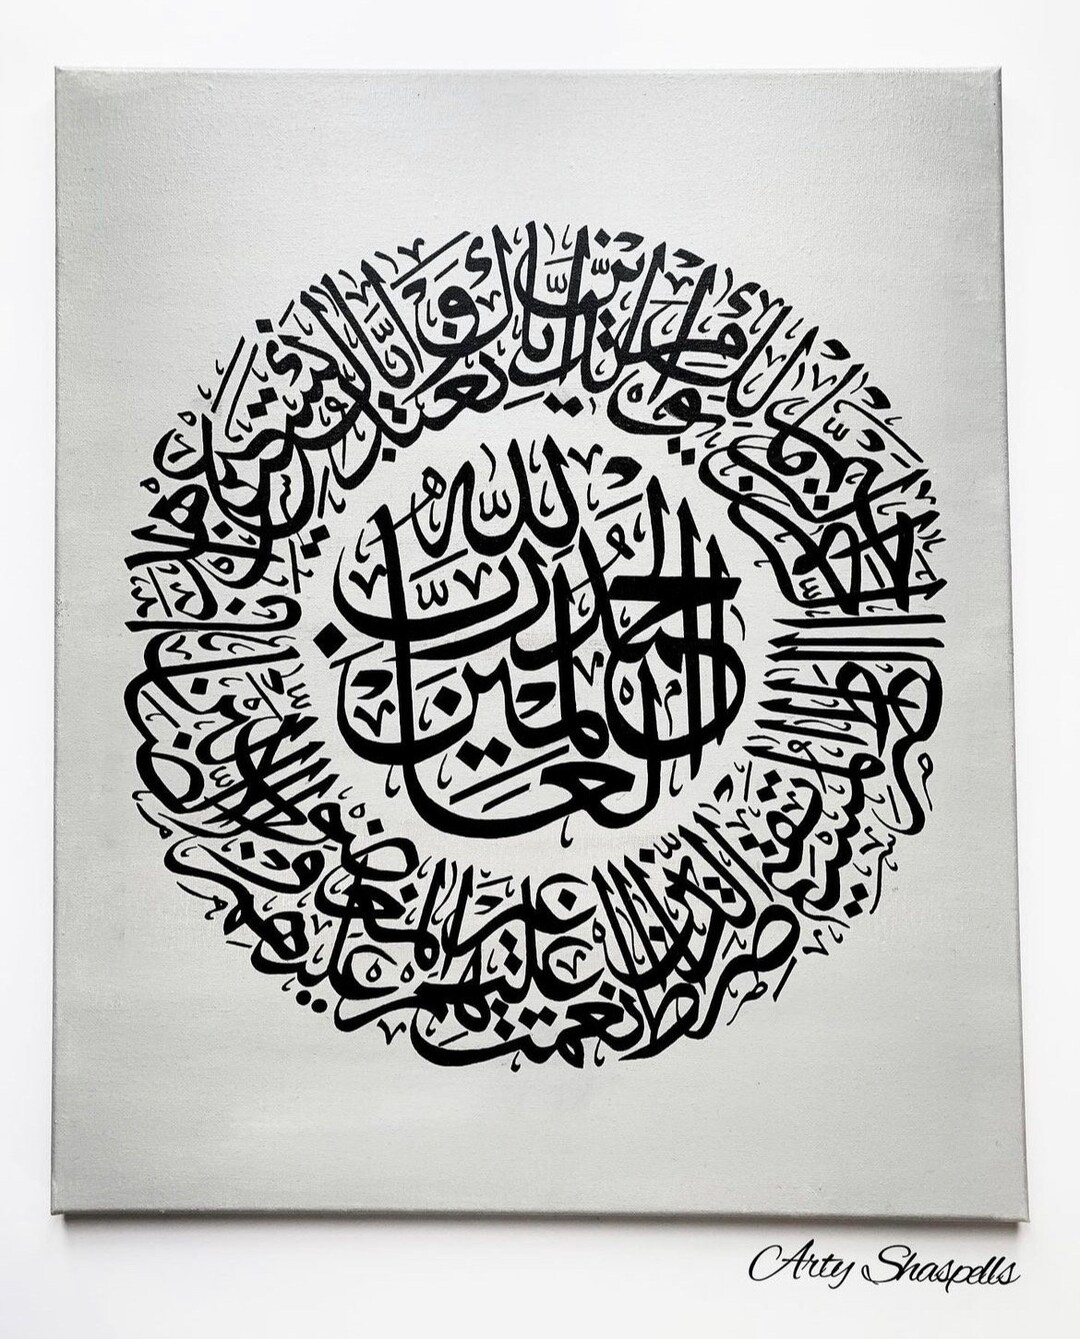 الحمد لله رب العالمين
الرحمن الرحيم مالك يوم الدين إياك نعبد وإياك نستعين اهدنا الصراط المستقيم صراط الذين أنعمت عليهم غير المغضوب عليهم ولا الضالين
Arty Shaspells